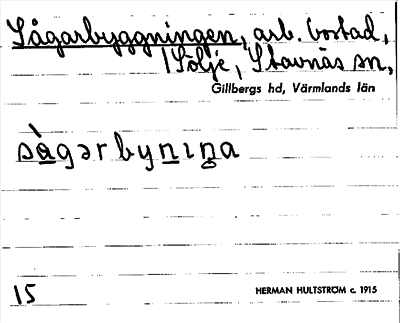 Sågarbyggningen, arb. bostad,
i Sölje, Stavnäs sn,
Gillbergs hd, Värmlands län
sàgərbynıṇa
15
HERMAN HULTSTRÖM c. 1915